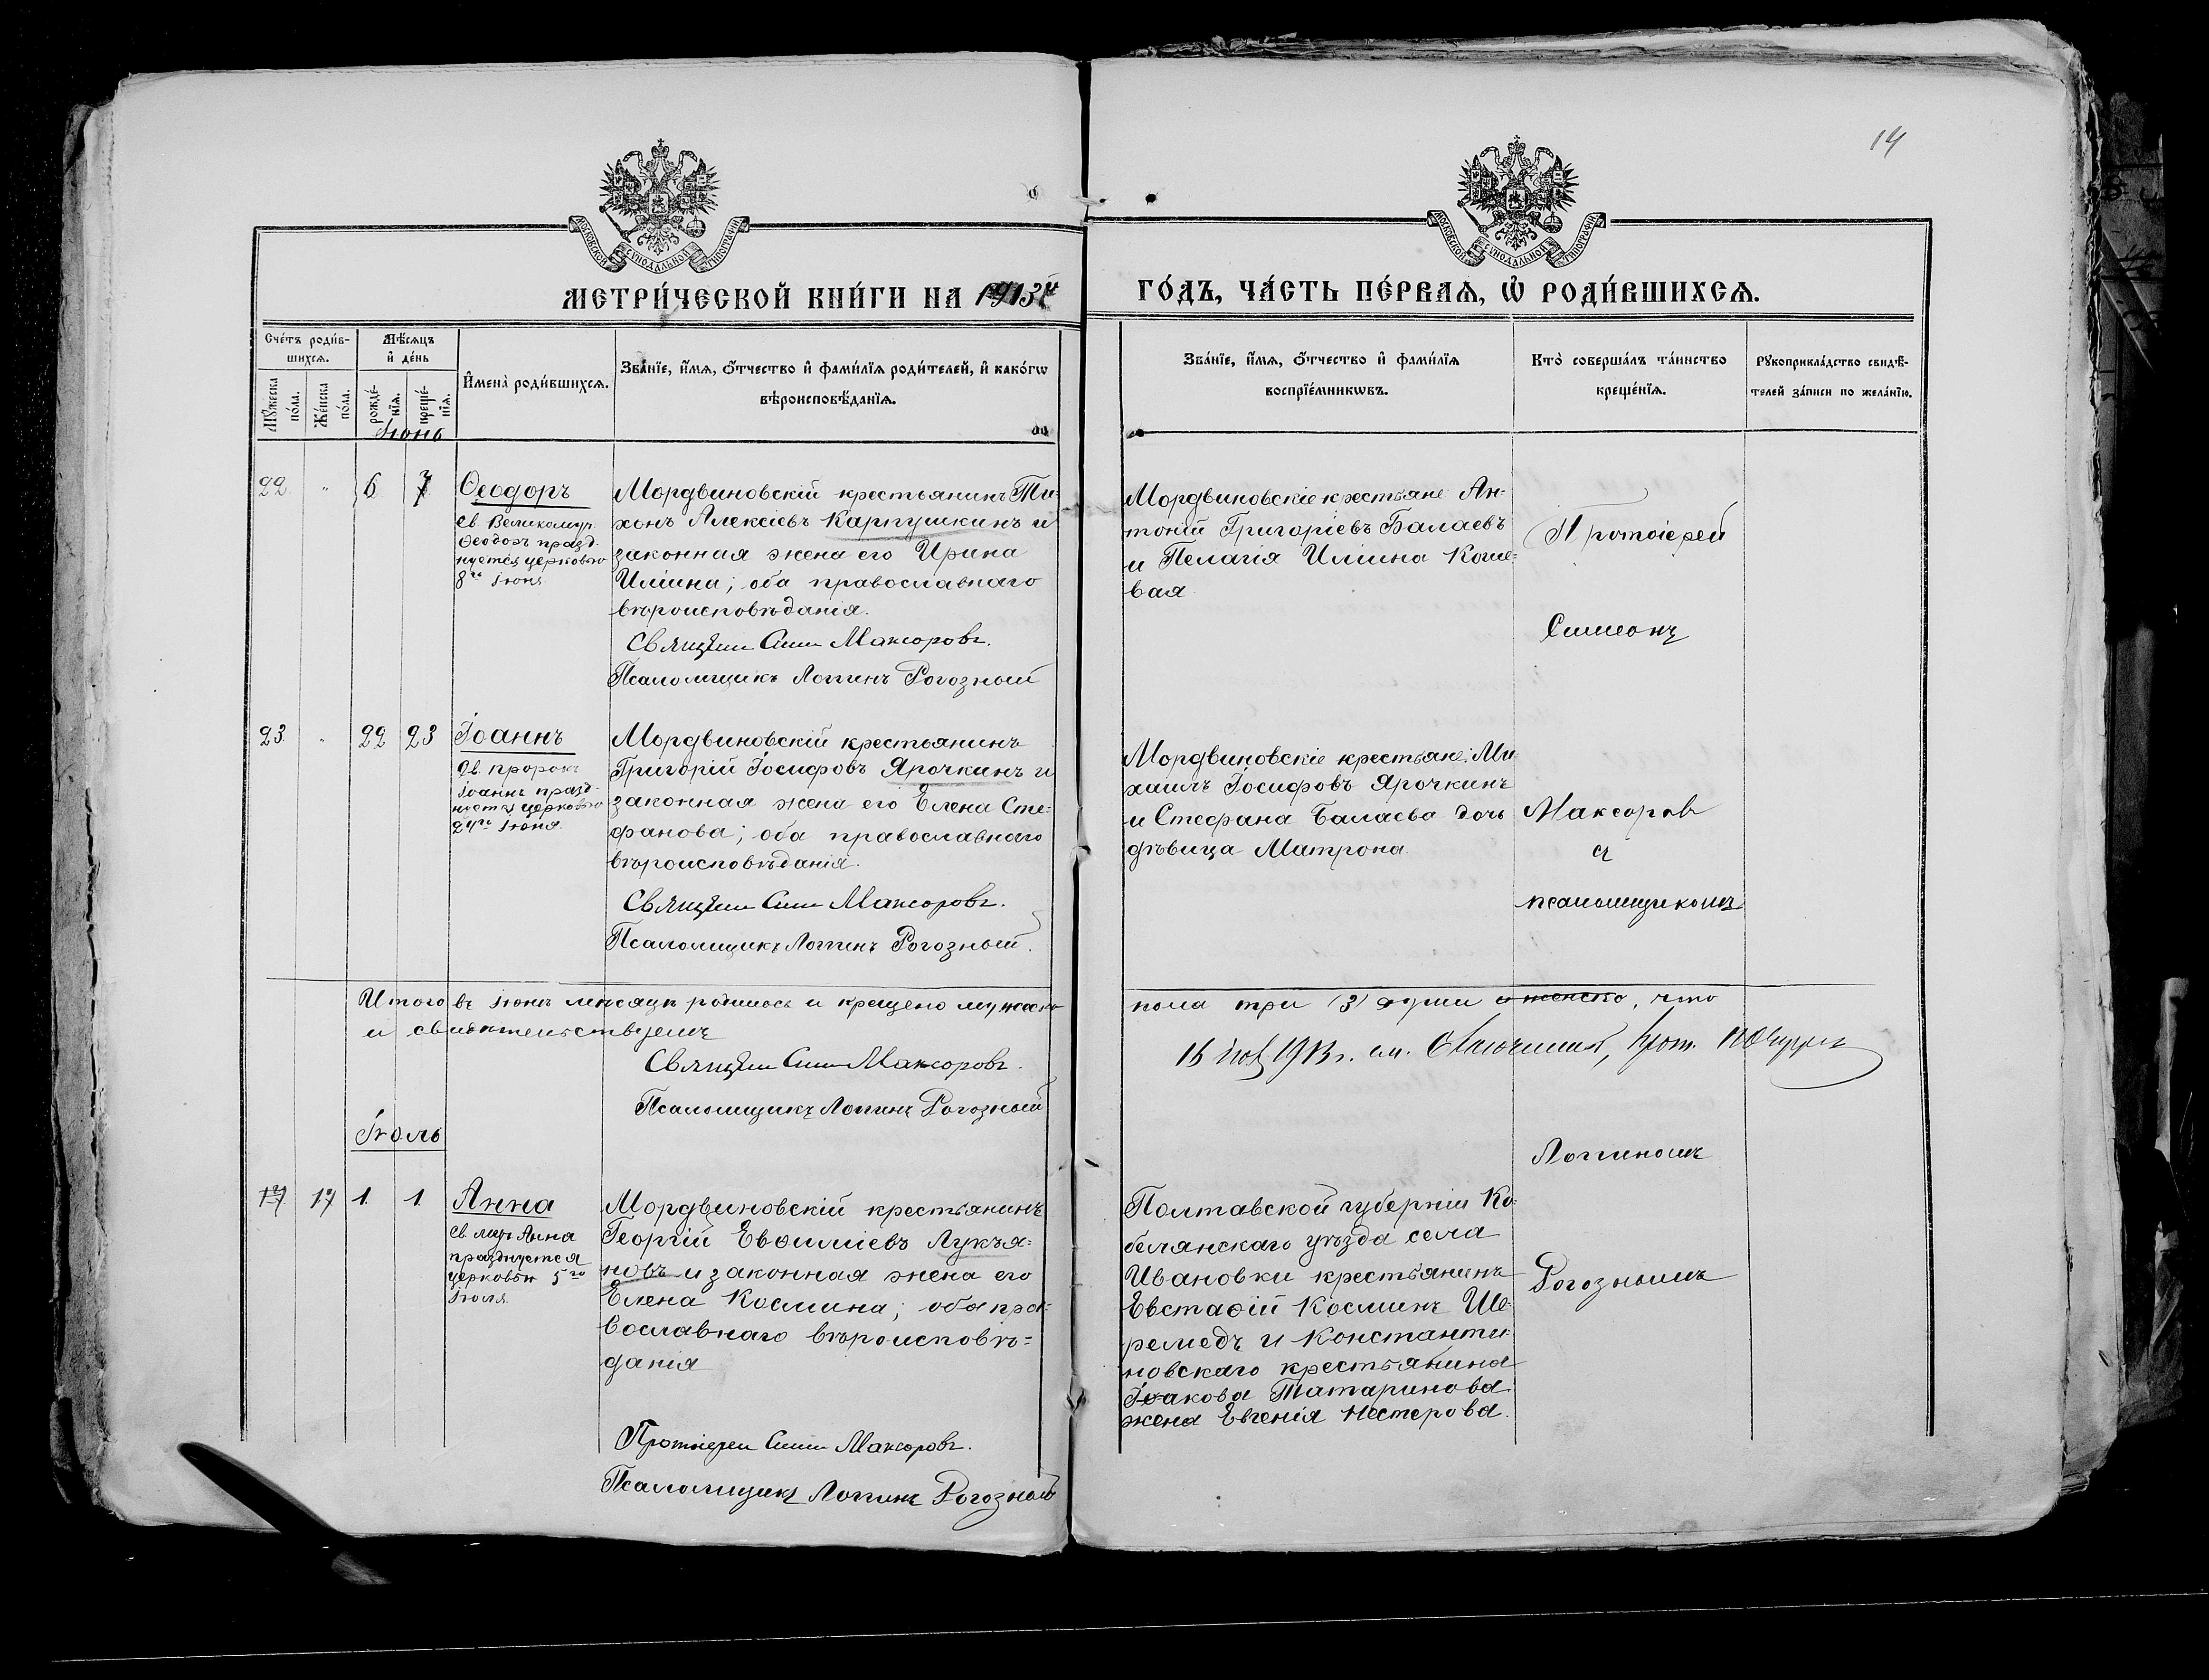 14
МОСКОВСКОЙ СѴНОДАЛЬНОЙ ТИПОГРАФІИ
МОСКОВСКОЙ СѴНОДАЛЬНОЙ ТИПОГРАФІИ
МЕТРИ́ЧЕСКОЙ КНИ́ГИ НА 1913й
ГО́ДЪ, ЧА́СТЬ ПЕ́РВАѦ, Ѡ҆ РОДИ́ВШИХСѦ.
Сче́тъ роди́в-
шихсѧ.
Мѣ́сѧцъ
и҆ де́нь
Мꙋ́жеска
по́ла.
Же́нска
по́ла.
рожде́-
нїѧ.
креще́-
нїѧ.
И҆мена̀ роди́вшихсѧ.
Зва́нїе, и҆́мѧ, ѻ҆́тчество и҆ фами́лїѧ роди́телей, и҆ како́гѡ
вѣроисповѣ́данїѧ.
Зва́нїе, и҆́мѧ, ѻ҆́тчество и҆ фами́лїѧ
воспрїе́мникѡвъ.
Кто̀ соверша́лъ та́инство
креще́нїѧ.
Рꙋкоприкла́дство свидѣ́-
телей за́писи по жела́нїю.
Іюнь
22 " 6 7 Ѳеодоръ
св. Великомуч.
Ѳеодоръ празд-
нуется церковью
8го Іюня
Мордвиновскій крестьянинъ Ти-
хонъ Алексіевъ Карпушкинъ и
законная жена его Ирина
Иліина; оба православнаго
вѣроисповѣданія.
Священн Сим Максоровъ.
Псаломщикъ Логгинъ Рогозный
Мордвиновскіе крестьяне Ан-
тоній Григоріевъ Балаевъ
и Пелагія Иліина Коше-
вая
Протоіерей
Симеонъ
23 " 22 23 Іоаннъ
Св. пророкъ
Іоаннъ празд-
нуется церковью
24го Іюня.
Мордвиновскій крестьянинъ
Григорій Іосифовъ Ярочкинъ и
законная жена его Елена Сте-
фанова; оба православнаго
вѣроисповѣданія.
Священн Сим Максоровъ.
Псаломщикъ Логгинъ Рогозный.
Мордвиновскіе крестьяне: Ми-
хаилъ Іосифовъ Ярочкинъ
и Стефана Балаева дочь
дѣвица Матрона.
Максоров
съ
псаломщикомъ
Итого въ Іюнѣ мѣсяцѣ родилось и крещено мужеско
пола три (3) души и женско, что
и свидѣтельствуемъ
Священн Сим Максоровъ.
Псаломщикъ Логгинъ Рогозный
1913 г.
Іюль
Логгиномъ
17 17 1 1 Анна
св. муч. Анна
празднуется
церковью 5го
Іюля.
Мордвиновскій крестьянинъ
Георгій Евѳиміевъ Лукья-
новъ и законная жена его
Елена Космина; оба пра-
вославнаго вѣроисповѣ-
данія
Протоіерей Сим Максоровъ.
Псаломщикъ Логгинъ Рогозный
Полтавской губерніи Ко-
белянскаго уѣзда села
Ивановки крестьянинъ
Евстафій Космин Ше-
ремедъ и Константи-
новскаго крестьянина
Іоакова Татаринова
жена Евгенія Нестерова.
Рогознымъ